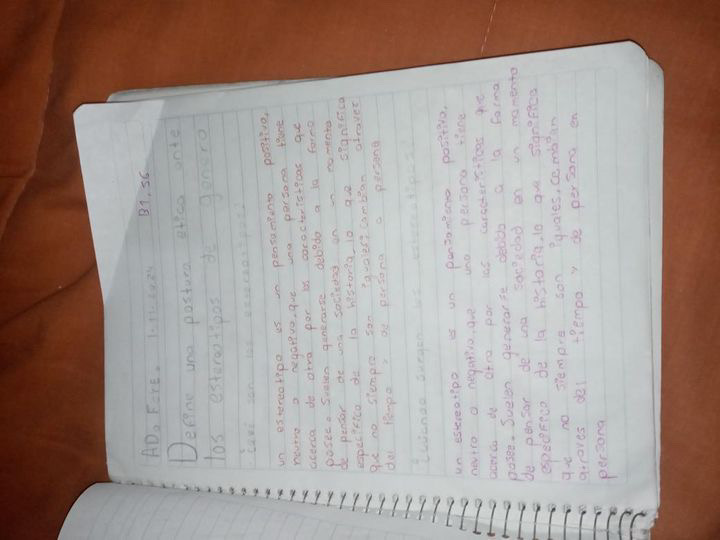 AD. F.C.E. 1.11.2024 B1.S6
Define una postura etica ante
los estereotipos de genero
¿Que son los estereotipos?
un estereotipo es un pensamiento positivo,
neutro o negativo, que una persona tiene
acerca de otra por las caracteristicas que
posee. Suelen generarse debido a la forma
de pensar de una sociedad en un momento
especifico de la historia, lo que significa
que no siempre son iguales: cambian atravez
del tiempo y de persona a persona
¿Cuándo surgen los estereotipos?
un estereotipo es un pensamiento positivo,
neutro o negativo, que una persona tiene
acerca de otra por las caracteristicas que
posee. Suelen generarse debido a la forma
de pensar de una sociedad en un momento
especifico de la historia, lo que significa
que no siempre son iguales, cambian
atraves del tiempo y de persona en
persona